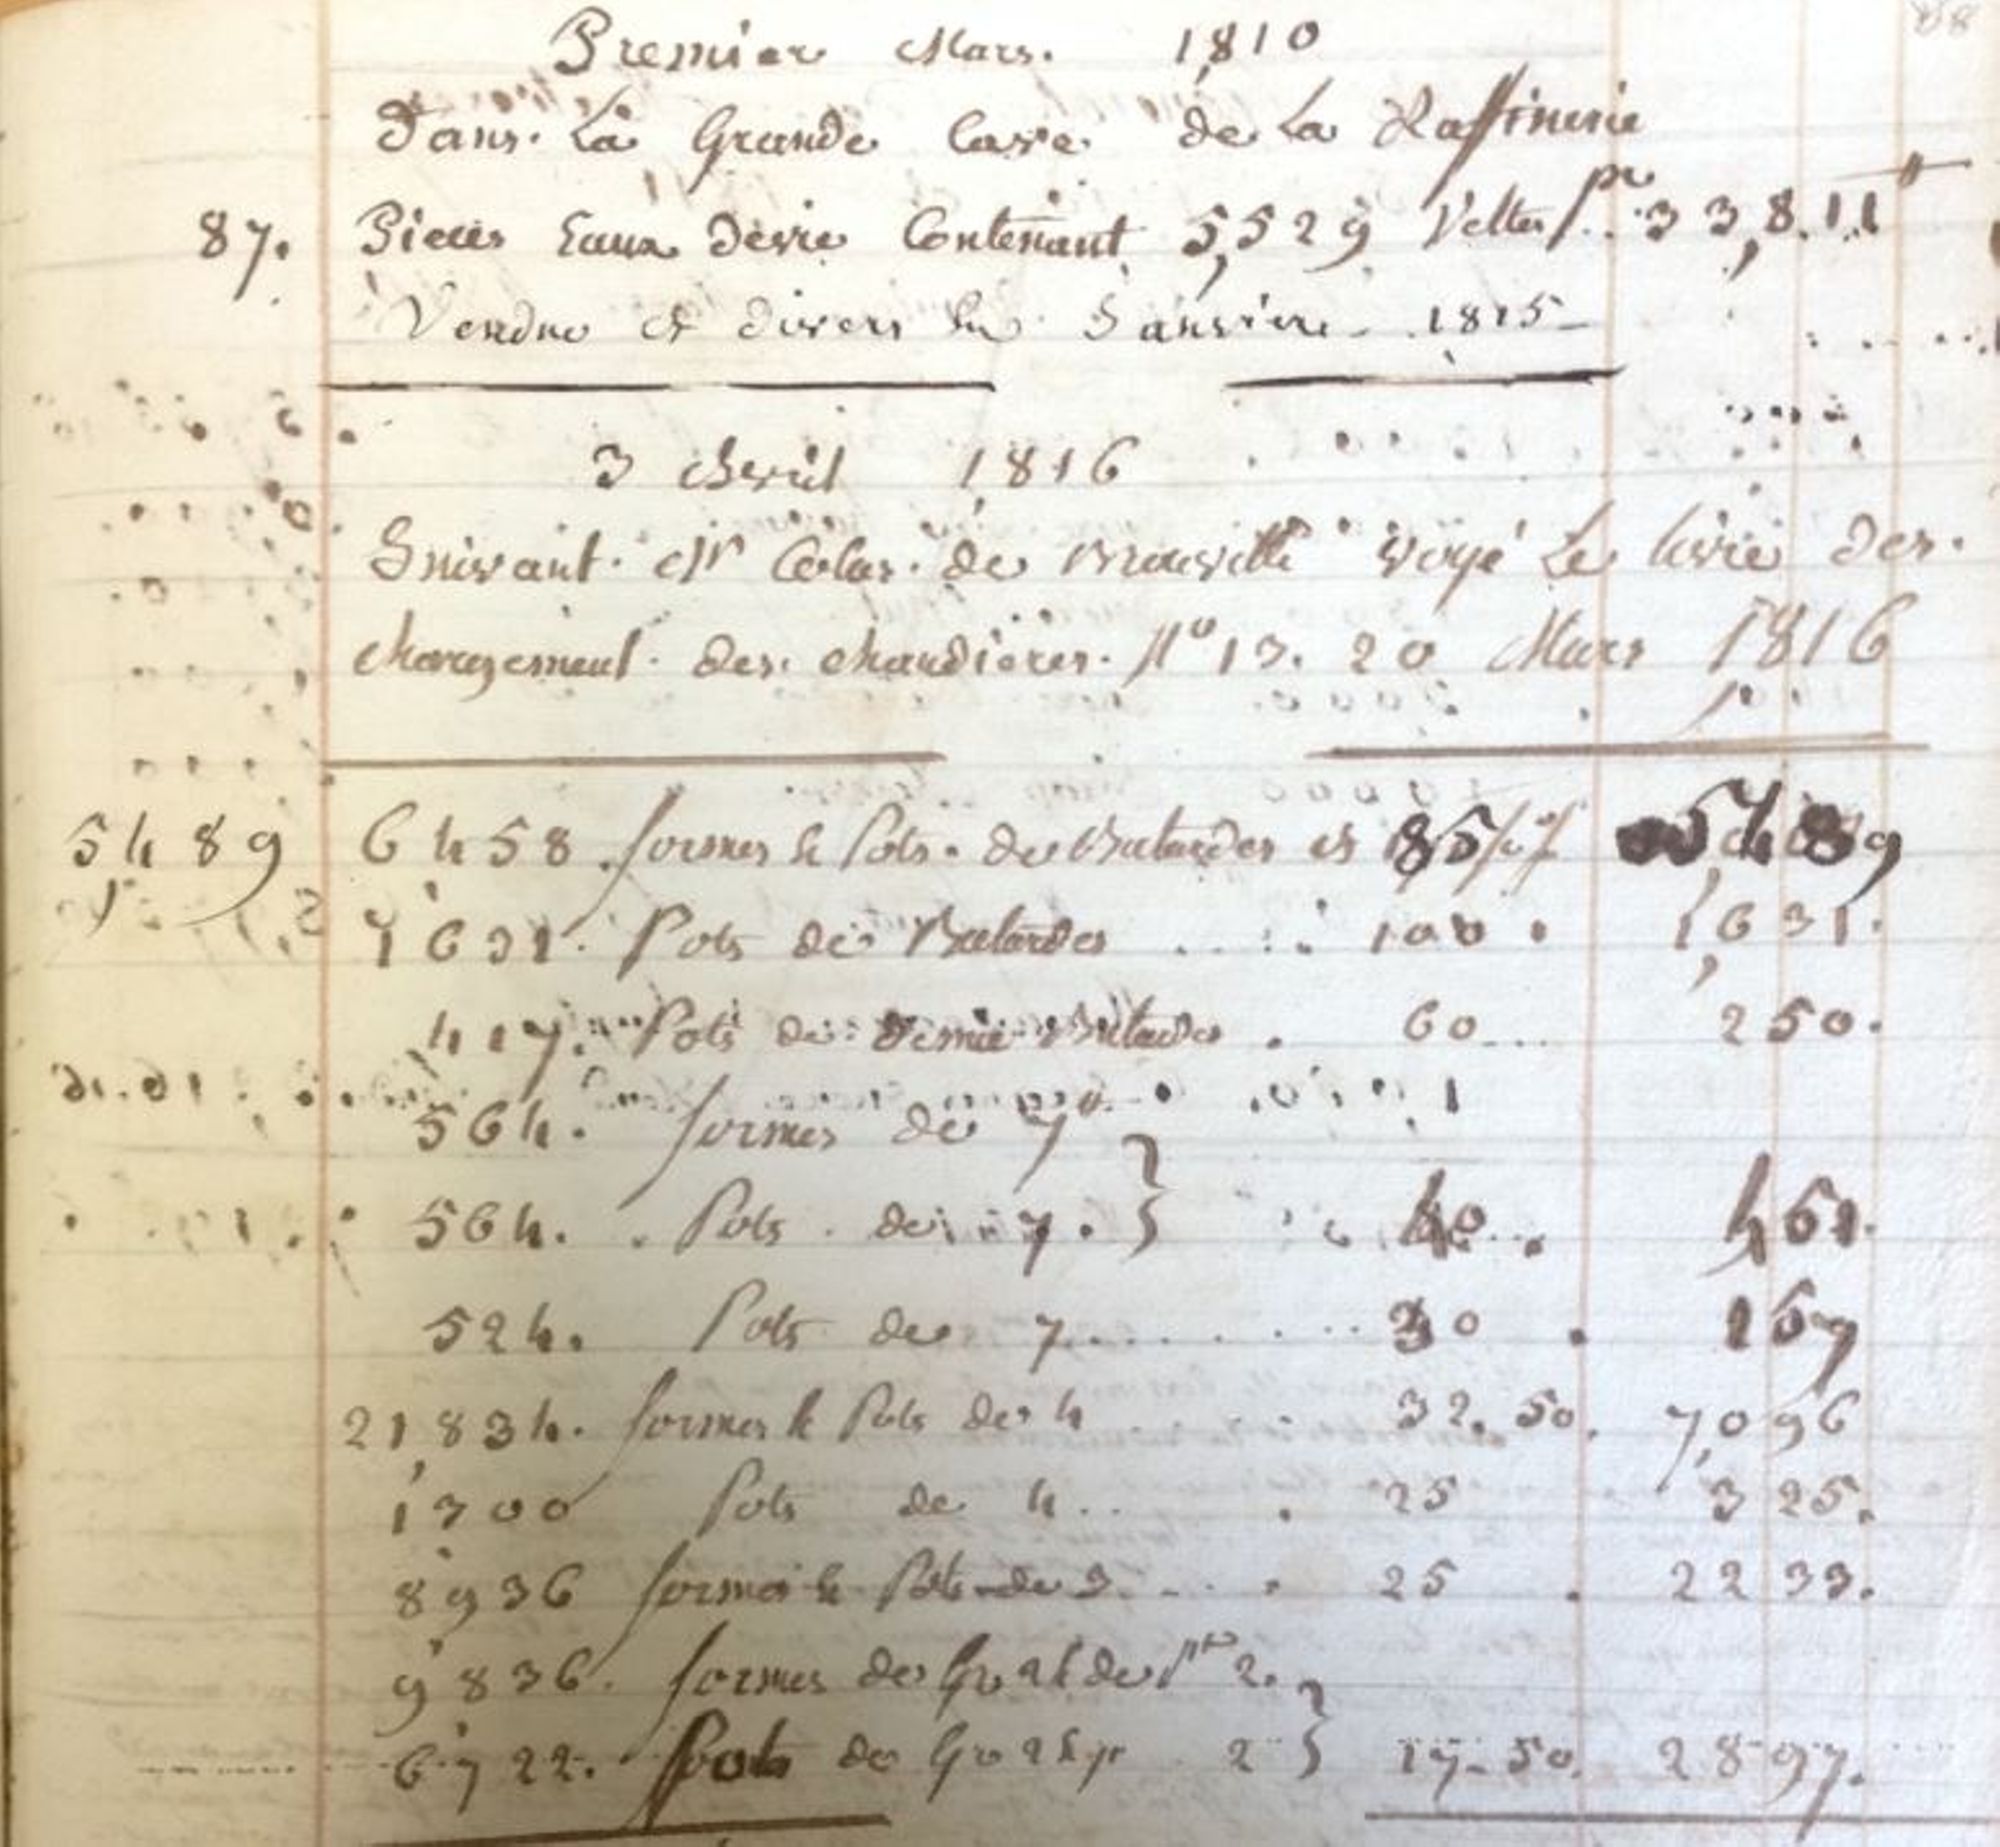 88
Premier Mars. 1,810
Dans. La Grande Cave de La Raffinerie
87. Pieces Eaux devie Contenant 5,529 Veltes pr 33,811 "
Vendue et divers en Janvier 1815
3 Avril 1,816
Suivant Mr Colas de Brouville voyé Le livre des
chargement des chaudieres. No 13. 20 Mars 1816
5489 6458 formes & Pots de Batardes et 85 5,489
1631. Pots de Batardes 100. 1,631.
417. Pots de Demie Batardes. 60 250.
564. formes de 7"
564. Pots de 7. } 80. 451.
524. Pots de 7 30. 157
21,834. formes & Pots de 4 32.50. 7,096
1300 Pots de 4 25 325.
8936 formes & Pots de 3 25. 2233.
9836. formes de Gr 2.
6722. Pots de Gr 2 } 17.50. 2897.